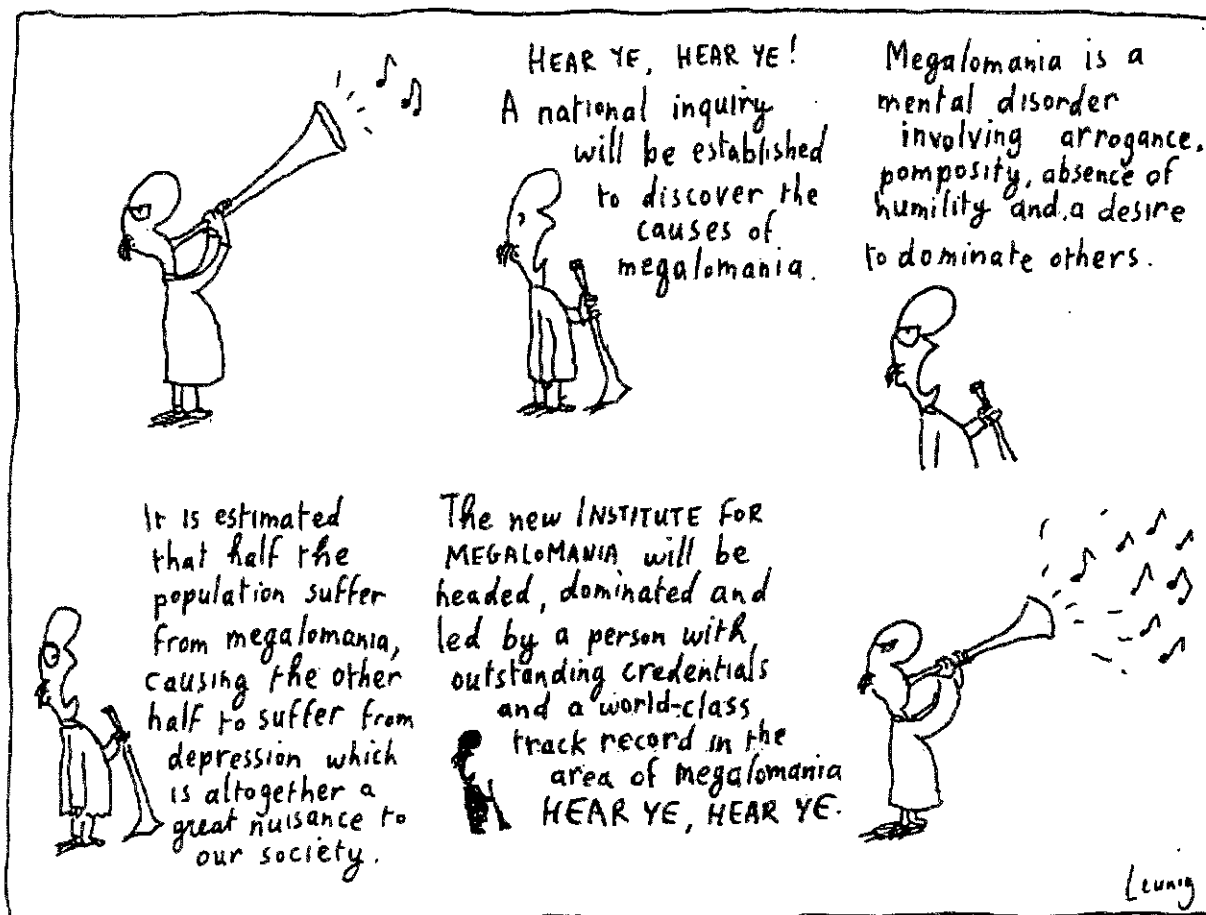 HEAR YE, HEAR YE!
A national inquiry
will be established
to discover the
causes of
megalomania.
Megalomania is a
mental disorder
involving arrogance,
pomposity, absence of
humility and a desire
to dominate others.
It is estimated
that half the
population suffer
from megalomania,
causing the other
half to suffer from
depression which
is altogether a
great nuisance to
our society.
The new INSTITUTE FOR
MEGALOMANIA will be
headed, dominated and
led by a person with
outstanding credentials
and a world-class
track record in the
area of megalomania
HEAR YE, HEAR YE.
Leunig